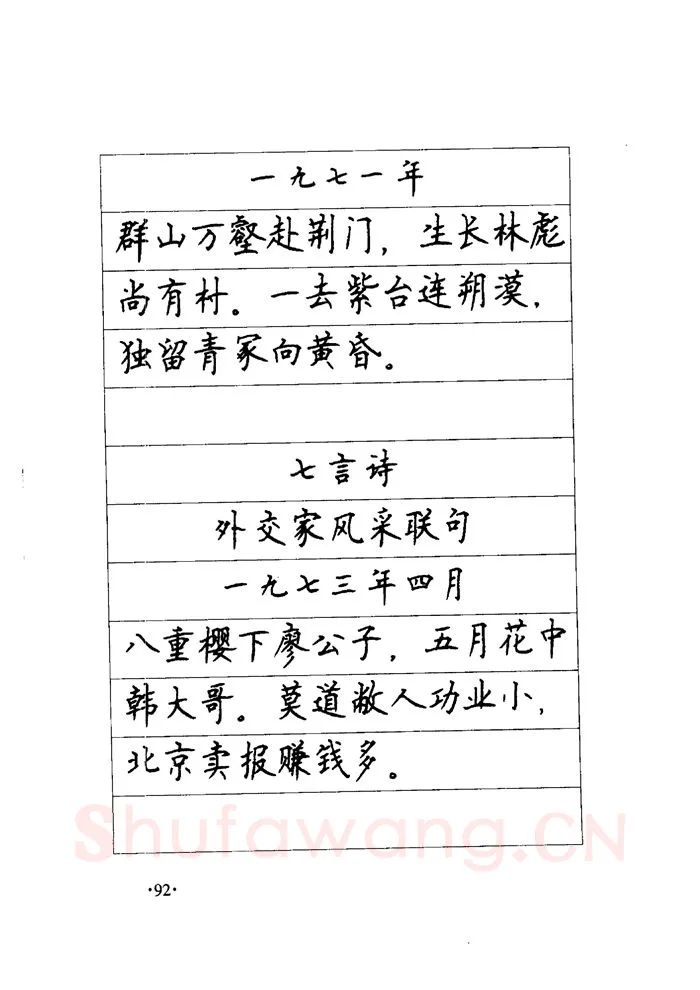 一九七一年
群山万壑赴荆门，生长林彪
尚有村。一去紫台连朔漠，
独留青冢向黄昏。
七言诗
外交家风采联句
一九七三年四月
八重樱下廖公子，五月花中
韩大哥。莫道敝人功业小，
北京卖报赚钱多。
Shufawang.CN
·92·